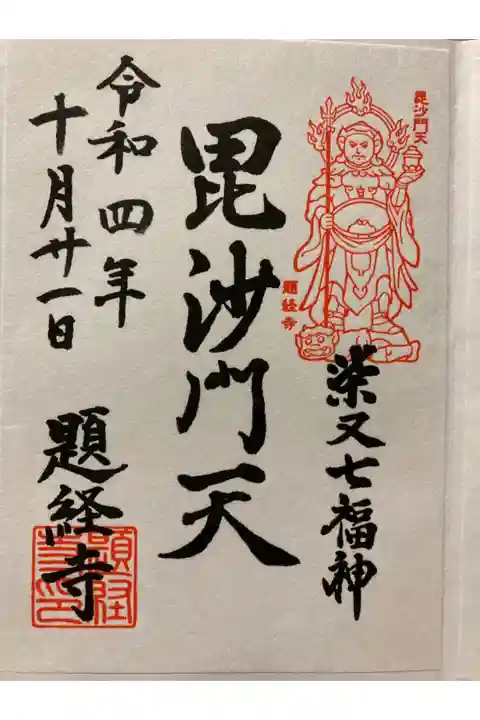 毘沙門天
題経寺
柴又七福神
毘沙門天
令和四年
十月廿一日
題経寺
題経
寺印